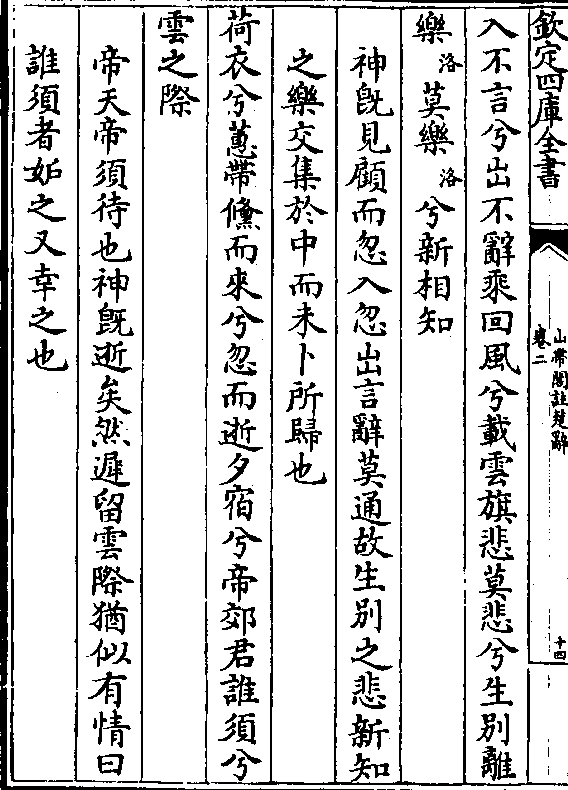 欽定四庫全書
山帶閣註楚辭
卷二
十四
入不言兮出不辭乘回風兮載雲旗悲莫悲兮生別離
樂洛莫樂洛兮新相知
神旣見顧而忽入忽出言辭莫通故生別之悲新知
之樂交集於中而未卜所歸也
荷衣兮蕙帶儵而來兮忽而逝夕宿兮帝郊君誰須兮
雲之際
帝天帝須待也神旣逝矣然遲留雲際猶似有情曰
誰須者妬之又幸之也